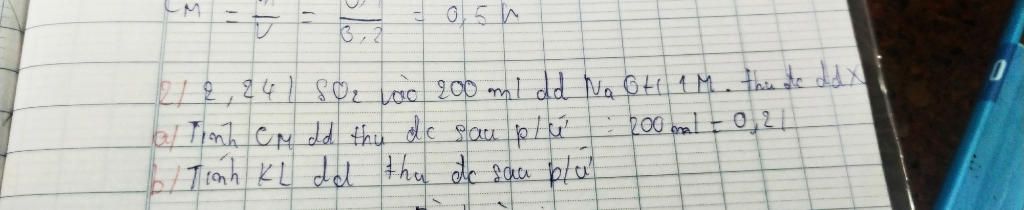 CM = n/V = 0,1/3,2 = 0,5 M
2/ 2,24 l SO2 vào 200 ml dd NaOH 1M. thu đc dd X
a/ Tính CM dd thu đc sau p/ứ : 200 ml = 0,2 l
b/ Tính KL dd thu đc sau p/ứ